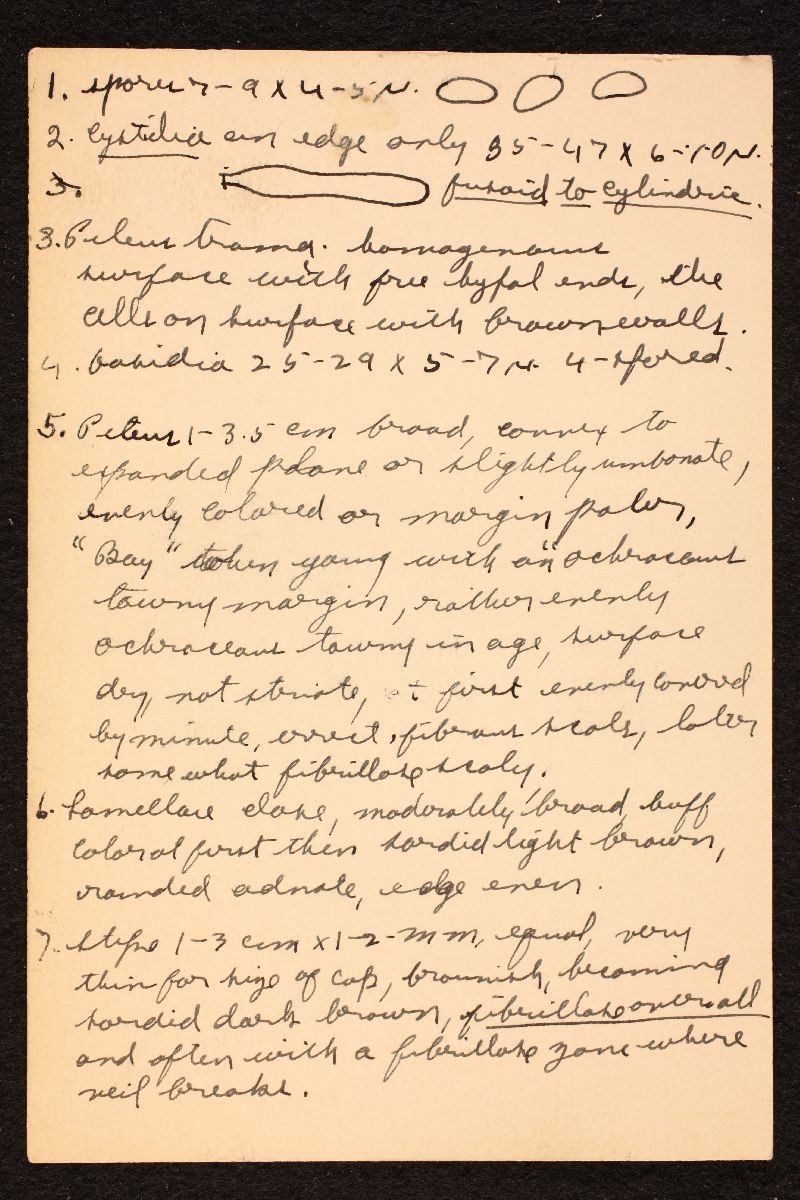 1. spores 7-9 x 4-5 µ.
2. Cystidia on edge only 35-47 x 6-10 µ.
3. fusoid to cylindric.
3. Pileus trama. homogenous
surface with free hyfal ends, the
cells on surface with brown walls.
4. basidia 25-29 x 5-7 µ 4-spored.
5. Pileus 1-3.5 cm broad, convex to
expanded plane or slightly umbonate,
evenly colored or margin paler,
"Bay" when young with an "ochraceous
tawny margin, rather evenly
ochraceous tawny in age, surface
dry, not striate, at first evenly covered
by minute, erect, fibrous scales, later
somewhat fibrillose scaly.
6. Lamellae close, moderately broad, buff
color at first then sordid light brown,
rounded adnate, edge even.
7. Stipe 1-3 cm x 1-2-mm, equal, very
thin for size of cap, brownish, becoming
sordid dark brown, fibrillose over all
and often with a fibrillose zone where
veil breaks.